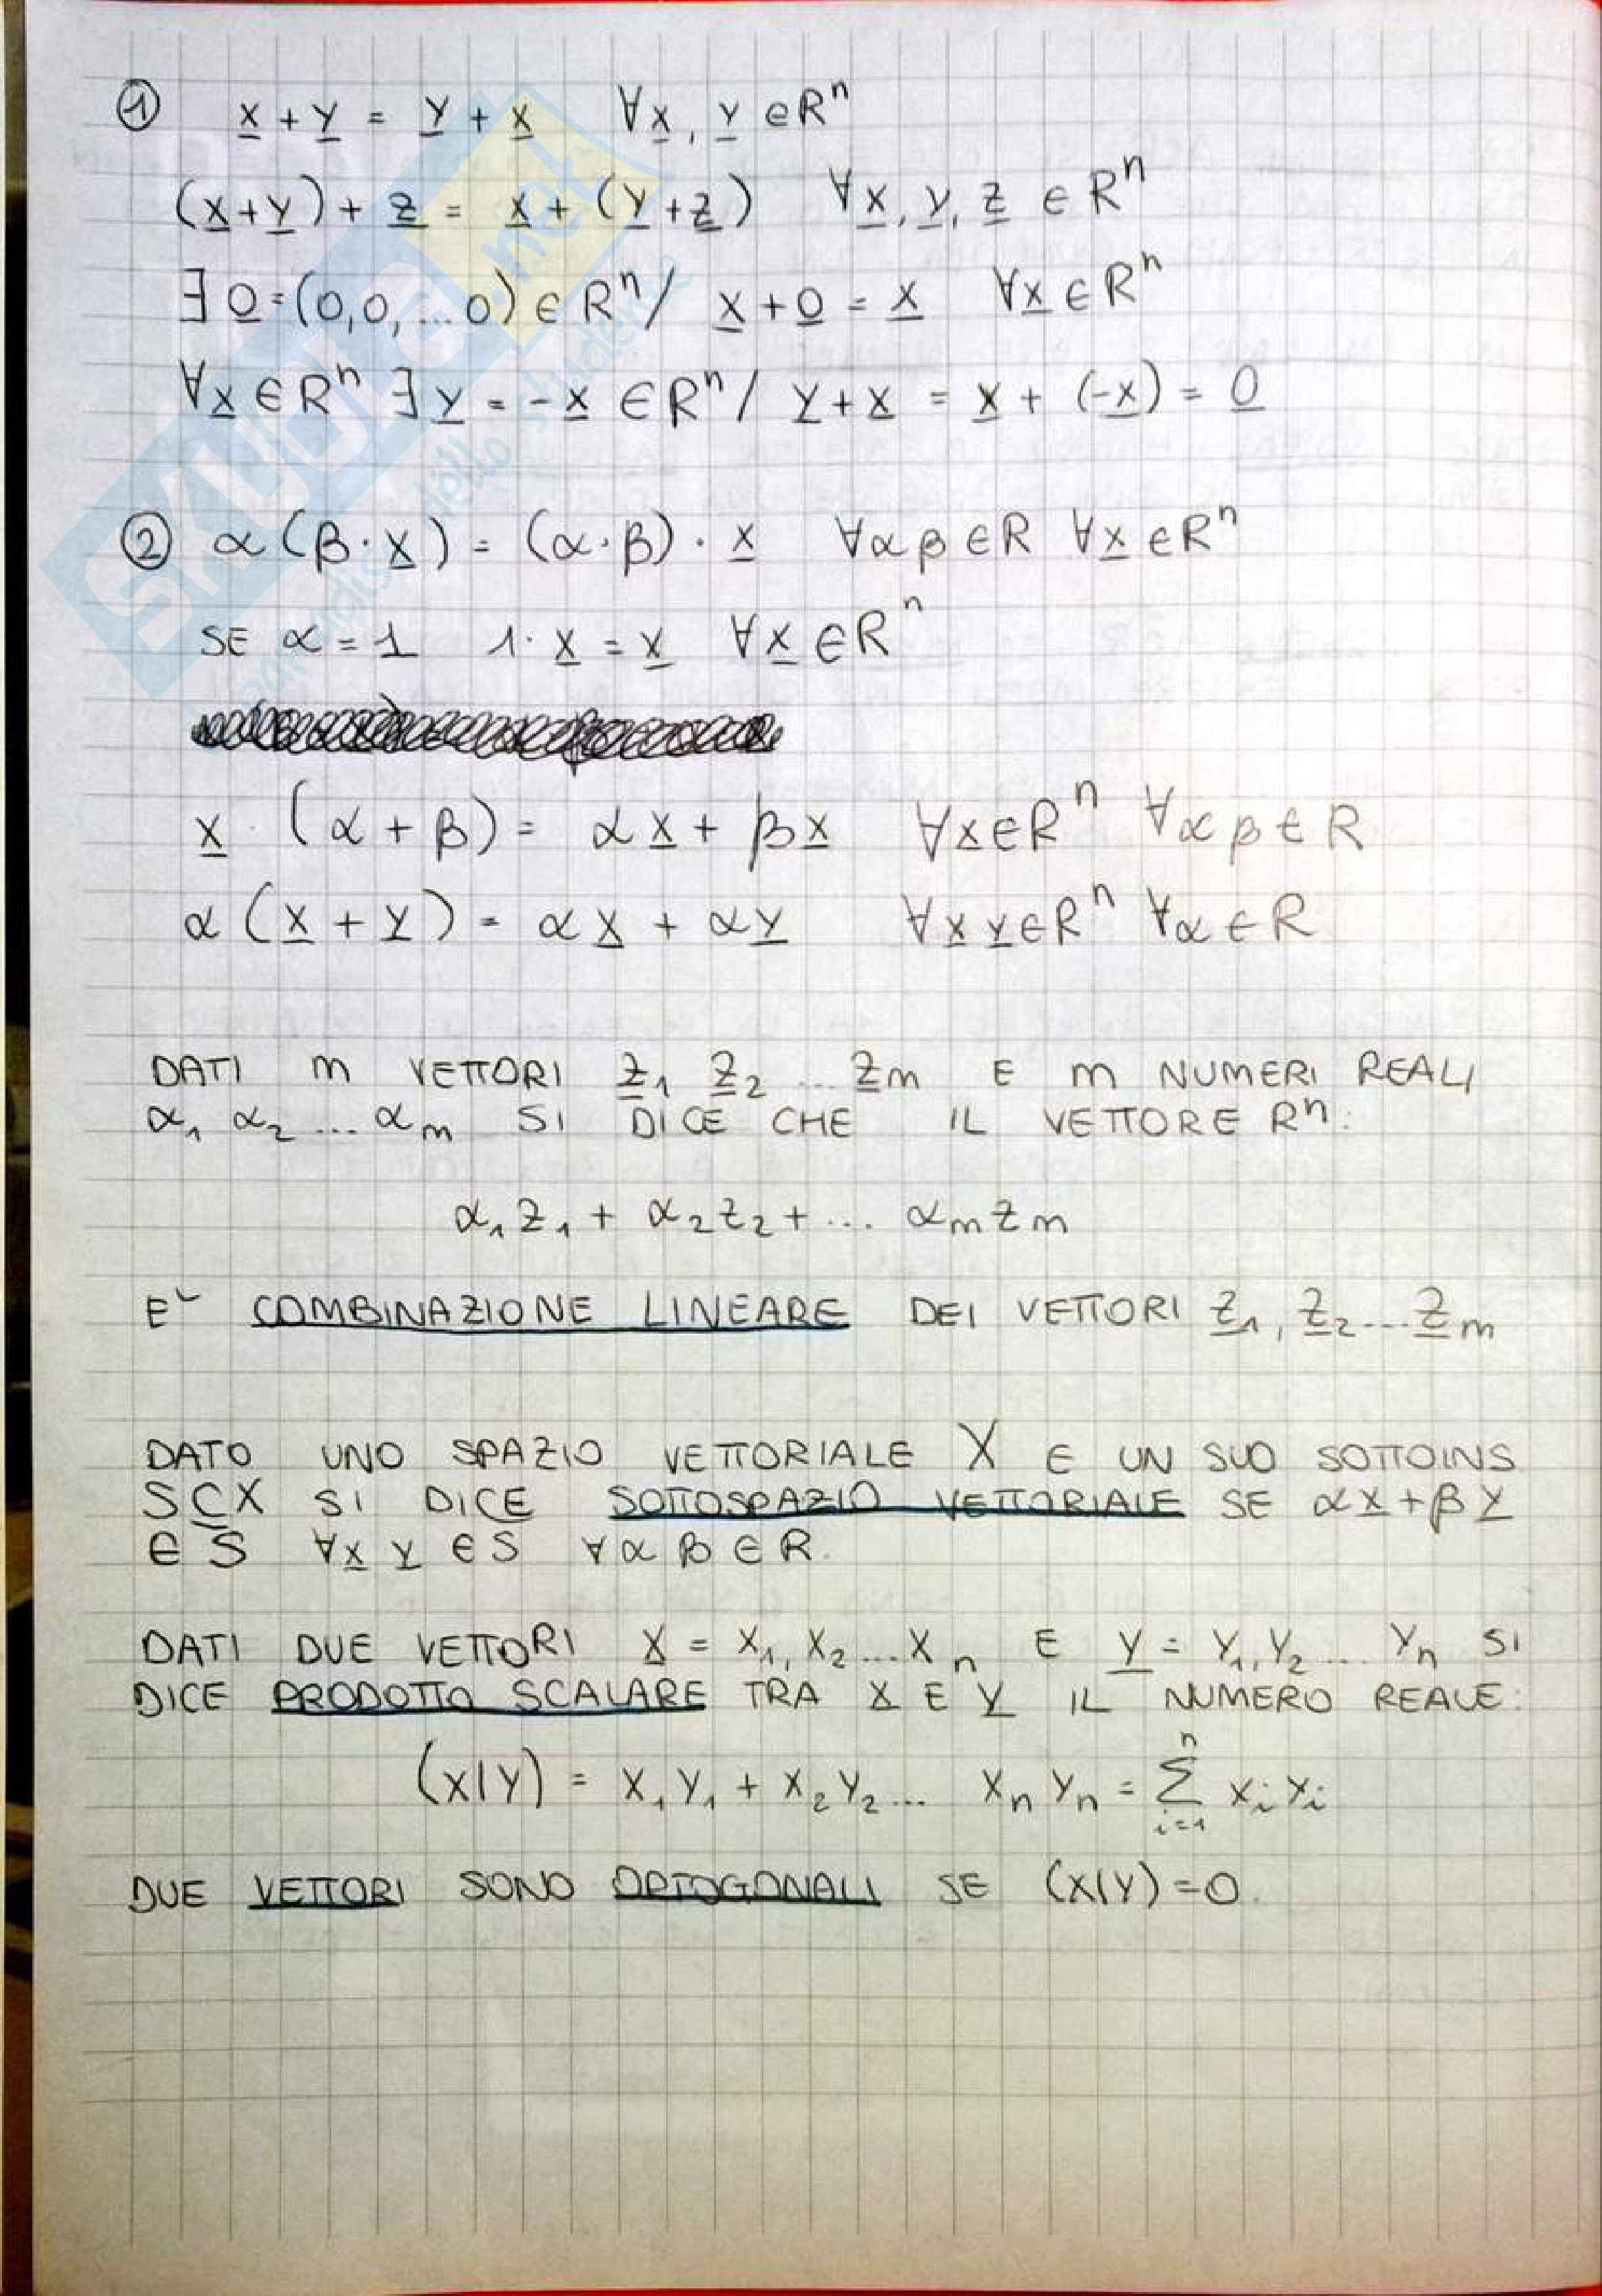 ① x + y = y + x ∀x, y ∈ Rⁿ
(x+y) + z = x + (y+z) ∀x, y, z ∈ Rⁿ
∃ 0 = (0,0,...0) ∈ Rⁿ / x + 0 = x ∀x ∈ Rⁿ
∀x ∈ Rⁿ ∃ y = -x ∈ Rⁿ / y + x = x + (-x) = 0
② α(β·x) = (α·β)·x ∀αβ ∈ R ∀x ∈ Rⁿ
SE α = 1 1·x = x ∀x ∈ Rⁿ
x·(α+β) = αx + βx ∀x ∈ Rⁿ ∀αβ ∈ R
α(x+y) = αx + αy ∀x y ∈ Rⁿ ∀α ∈ R
DATI m VETTORI z₁ z₂ ... zm E m NUMERI REALI
α₁ α₂ ... αm SI DICE CHE IL VETTORE Rⁿ:
α₁z₁ + α₂z₂ + ... αmzm
E` COMBINAZIONE LINEARE DEI VETTORI z₁, z₂...zm
DATO UNO SPAZIO VETTORIALE X E UN SUO SOTTOINS
S⊆X SI DICE SOTTOSPAZIO VETTORIALE SE αx+βy
∈ S ∀x y ∈ S ∀αβ ∈ R.
DATI DUE VETTORI x = x₁, x₂...xn E y = y₁, y₂... yn SI
DICE PRODOTTO SCALARE TRA x E y IL NUMERO REALE:
(x|y) = x₁y₁ + x₂y₂... xnyn = Σⁿᵢ₌₁ xᵢyᵢ
DUE VETTORI SONO ORTOGONALI SE (x|y)=0.
SKUOLA.net
dello studente